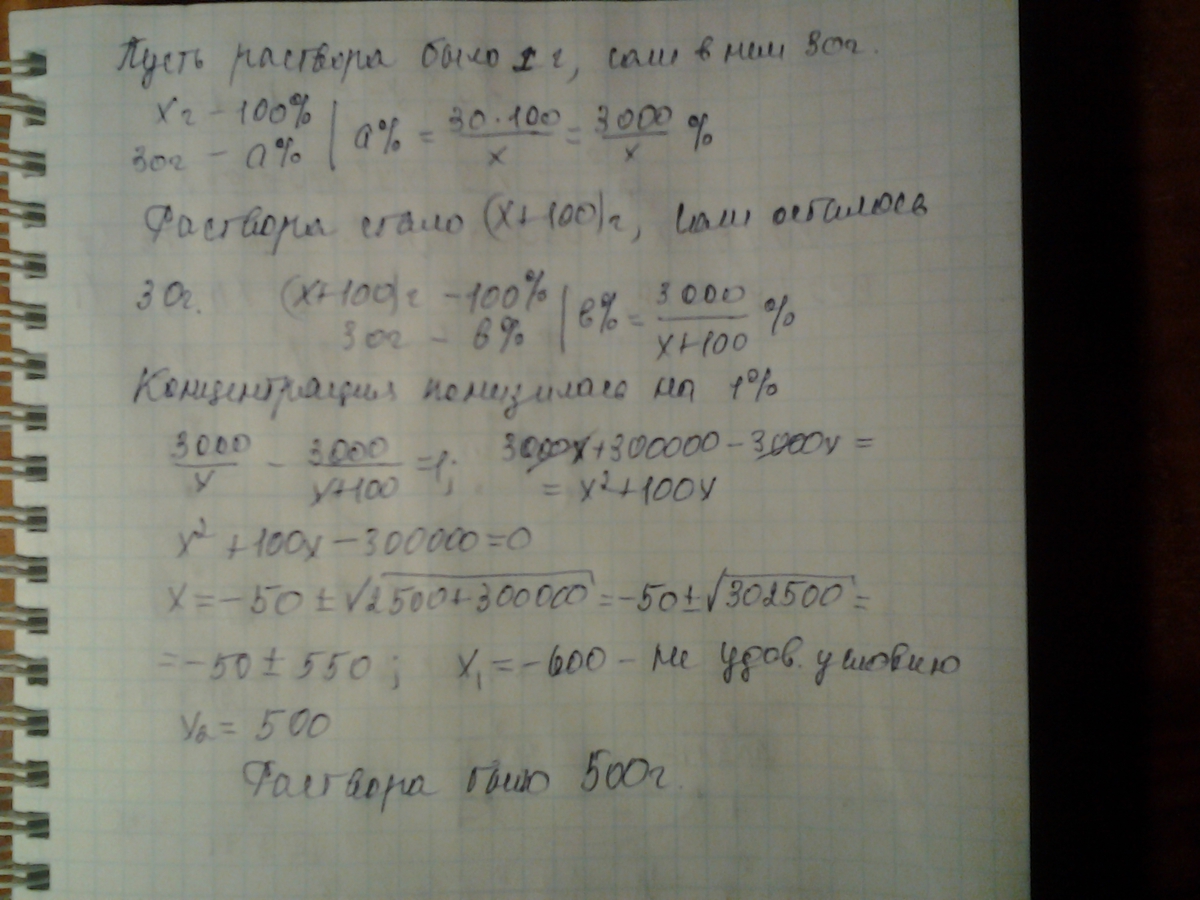 Пусть раствора было x г, соли в нем 30г.
xг - 100% | a% = 30·100/x = 3000/x %
30г - a%
Раствора стало (x+100)г, соли осталось
30г. (x+100)г - 100% | в% = 3000/x+100 %
30г - в%
Концентрация понизилась на 1%
3000/x - 3000/x+100 = 1; 3000x+300000-3000x =
= x²+100x
x²+100x-300000=0
x = -50 ± √2500+300000 = -50±√302500 =
= -50 ± 550; x₁ = -600 - не удов. условию
x₂ = 500
Раствора было 500г.